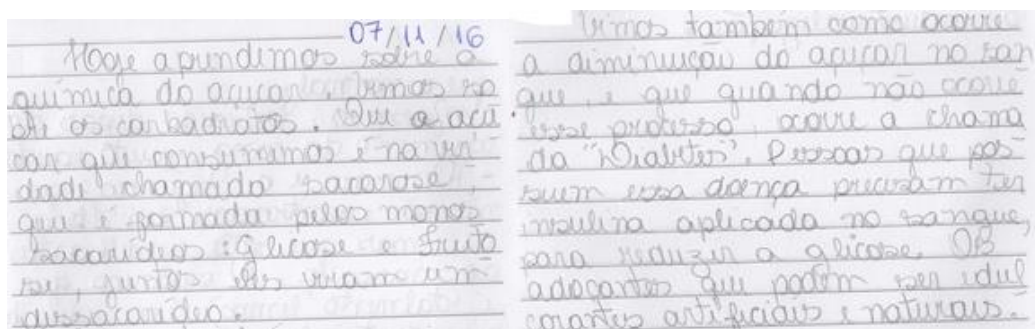 07/11/16
Hoje apundimos sobre a
química do açucar. Vimos so
bre os carbadratos. Que o açu
car que consumimos é na ver
dade chamado sacarose,
que é formada pelos monos
sacarídeos: Glicose e fruto
se, juntos eles viram um
dissacarídeo.
Vimos também como ocorre
a diminuição do açucar no san
gue, e que quando não ocorre
esse processo, ocorre a chama
da "Diabetes". Pessoas que pos
suem essa doença precisam ter
insulina aplicada no sangue,
para reduzir a glicose. OB
adoçantes que podem ser edul
corantes artificiais e naturais.